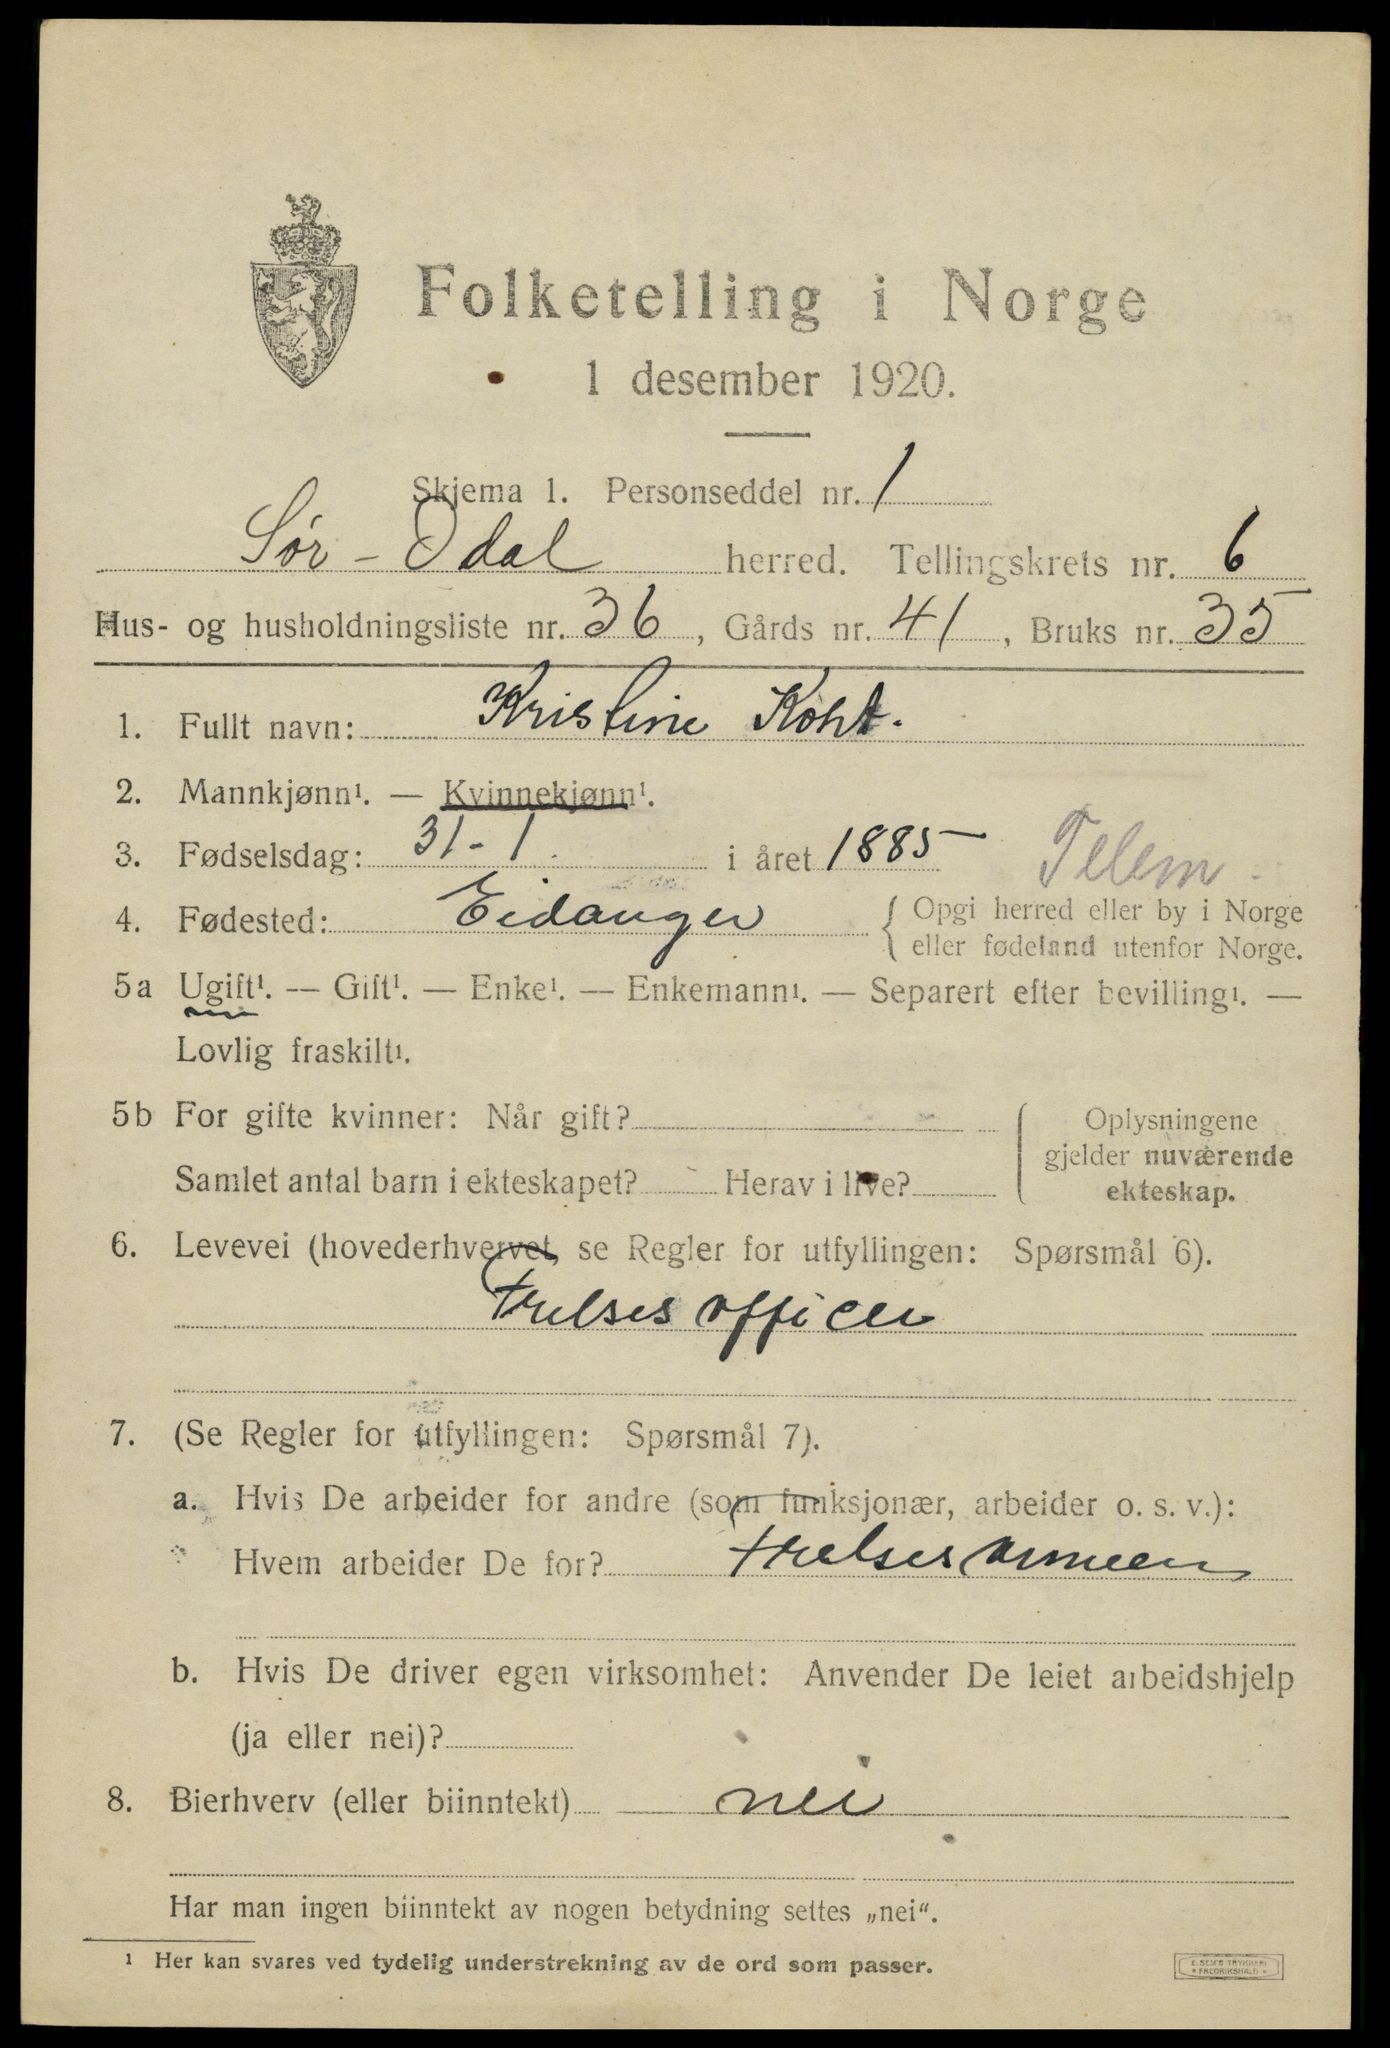 Folketelling i Norge
1 desember 1920.
Skjema 1. Personseddel nr. 1
Sør-Odal herred. Tellingskrets nr. 6
Hus- og husholdningsliste nr. 36, Gårds nr. 41, Bruks nr. 35
1. Fullt navn: Kristine Koht.
2. Mannkjønn¹. — Kvinnekjønn¹.
3. Fødselsdag: 31-1 i året 1885
Telem.
4. Fødested: Eidanger { Opgi herred eller by i Norge
eller fødeland utenfor Norge.
5a Ugift¹. — Gift¹. — Enke¹. — Enkemann¹. — Separert efter bevilling¹. —
Lovlig fraskilt¹.
5b For gifte kvinner: Når gift?
Samlet antal barn i ekteskapet? Herav i live?
Oplysningene
gjelder nuværende
ekteskap.
6. Levevei (hovederhvervet, se Regler for utfyllingen: Spørsmål 6).
Frelsesofficer
7. (Se Regler for utfyllingen: Spørsmål 7).
a. Hvis De arbeider for andre (som funksjonær, arbeider o. s. v.):
Hvem arbeider De for? Frelsesarmeen
b. Hvis De driver egen virksomhet: Anvender De leiet arbeidshjelp
(ja eller nei)?
8. Bierhverv (eller biinntekt) nei
Har man ingen biinntekt av nogen betydning settes „nei“.
¹ Her kan svares ved tydelig understrekning av de ord som passer.
E. SEM'S TRYKKERI
* FREDRIKSHALD *